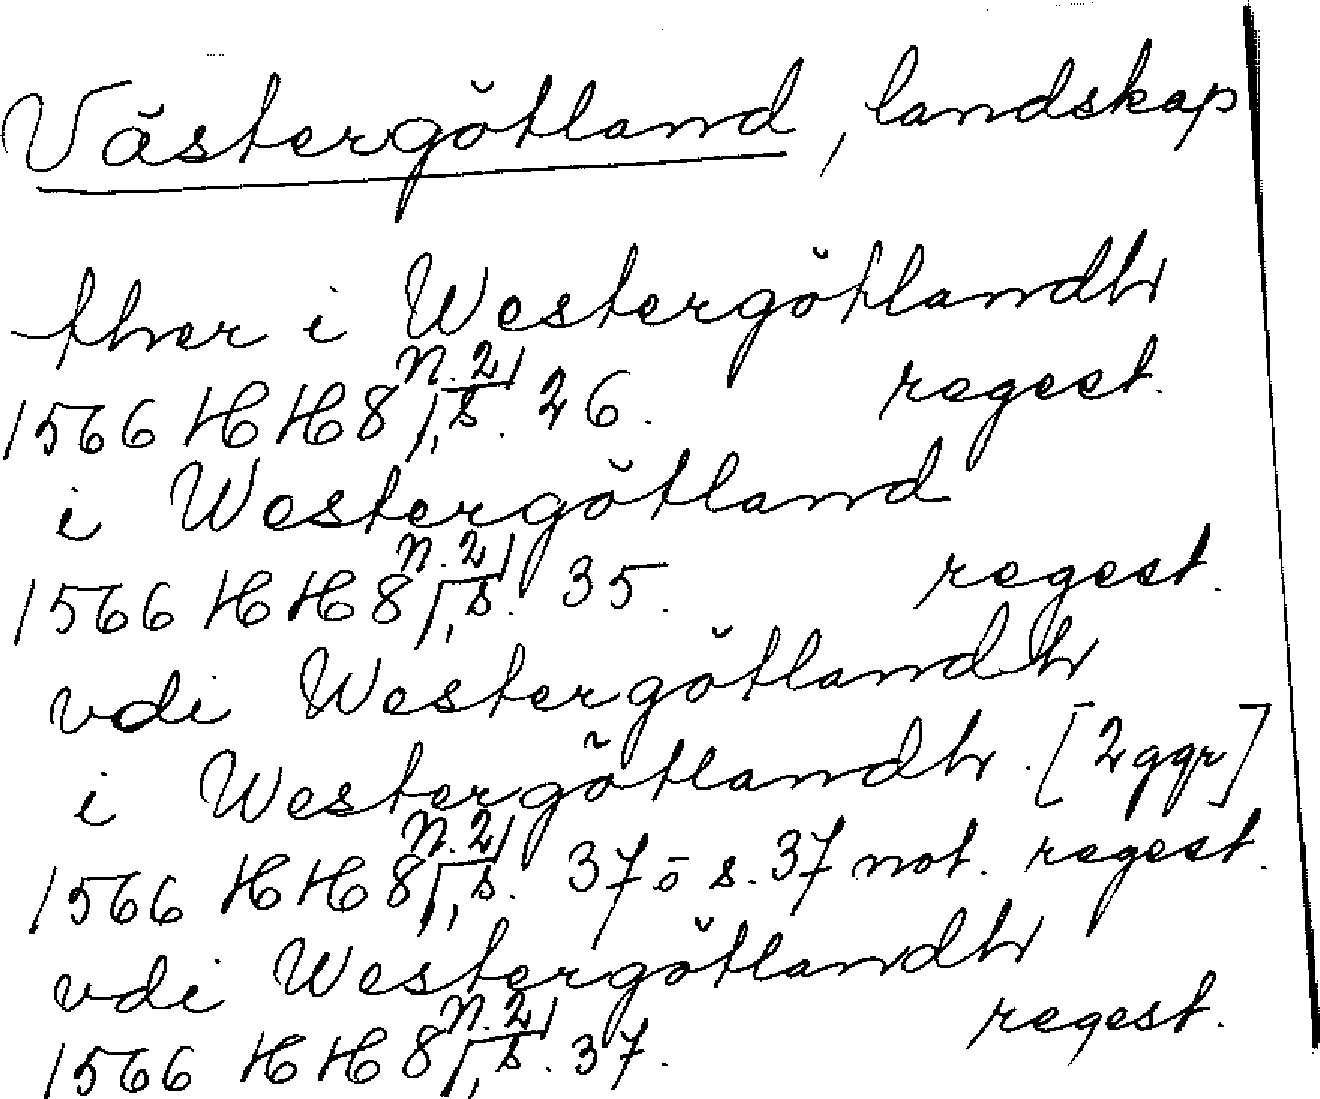 Västergötland, landskap
ther i Westergötlandh
1566 HH 8 n. 2, s. 26. regest.
i Westergötland
1566 HH 8 n. 2, s. 35. regest.
vdi Westergötlandh
i Westergötlandh. [2 ggr]
1566 HH 8 n. 2, s. 37 o s. 37 not. regest.
vdi Westergötlandh
1566 HH 8 n. 2, s. 37. regest.